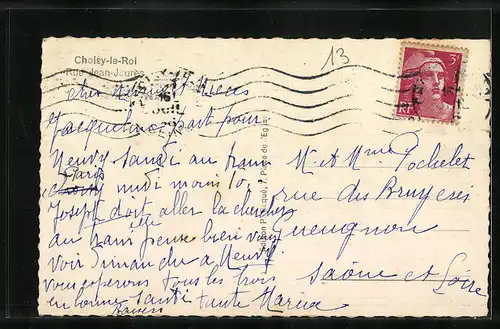 Choisy-le-Roi
Rue Jean-Jaurès
13
3F
RF
Cher Neveu et Nièces
Jacqueline part pour
Neuvy samedi au train
Paris
midi moins 10.
Joseph doit aller la chercher
au train elle pense bien vous
voir Dimanche à Neuvy.
vous espérons tous les trois
en bonne santé tante Maria
baisers
M. et Mme Pochelet
rue des Bruyères
Gueugnon
Saône et Loire
Place de l'Eglise